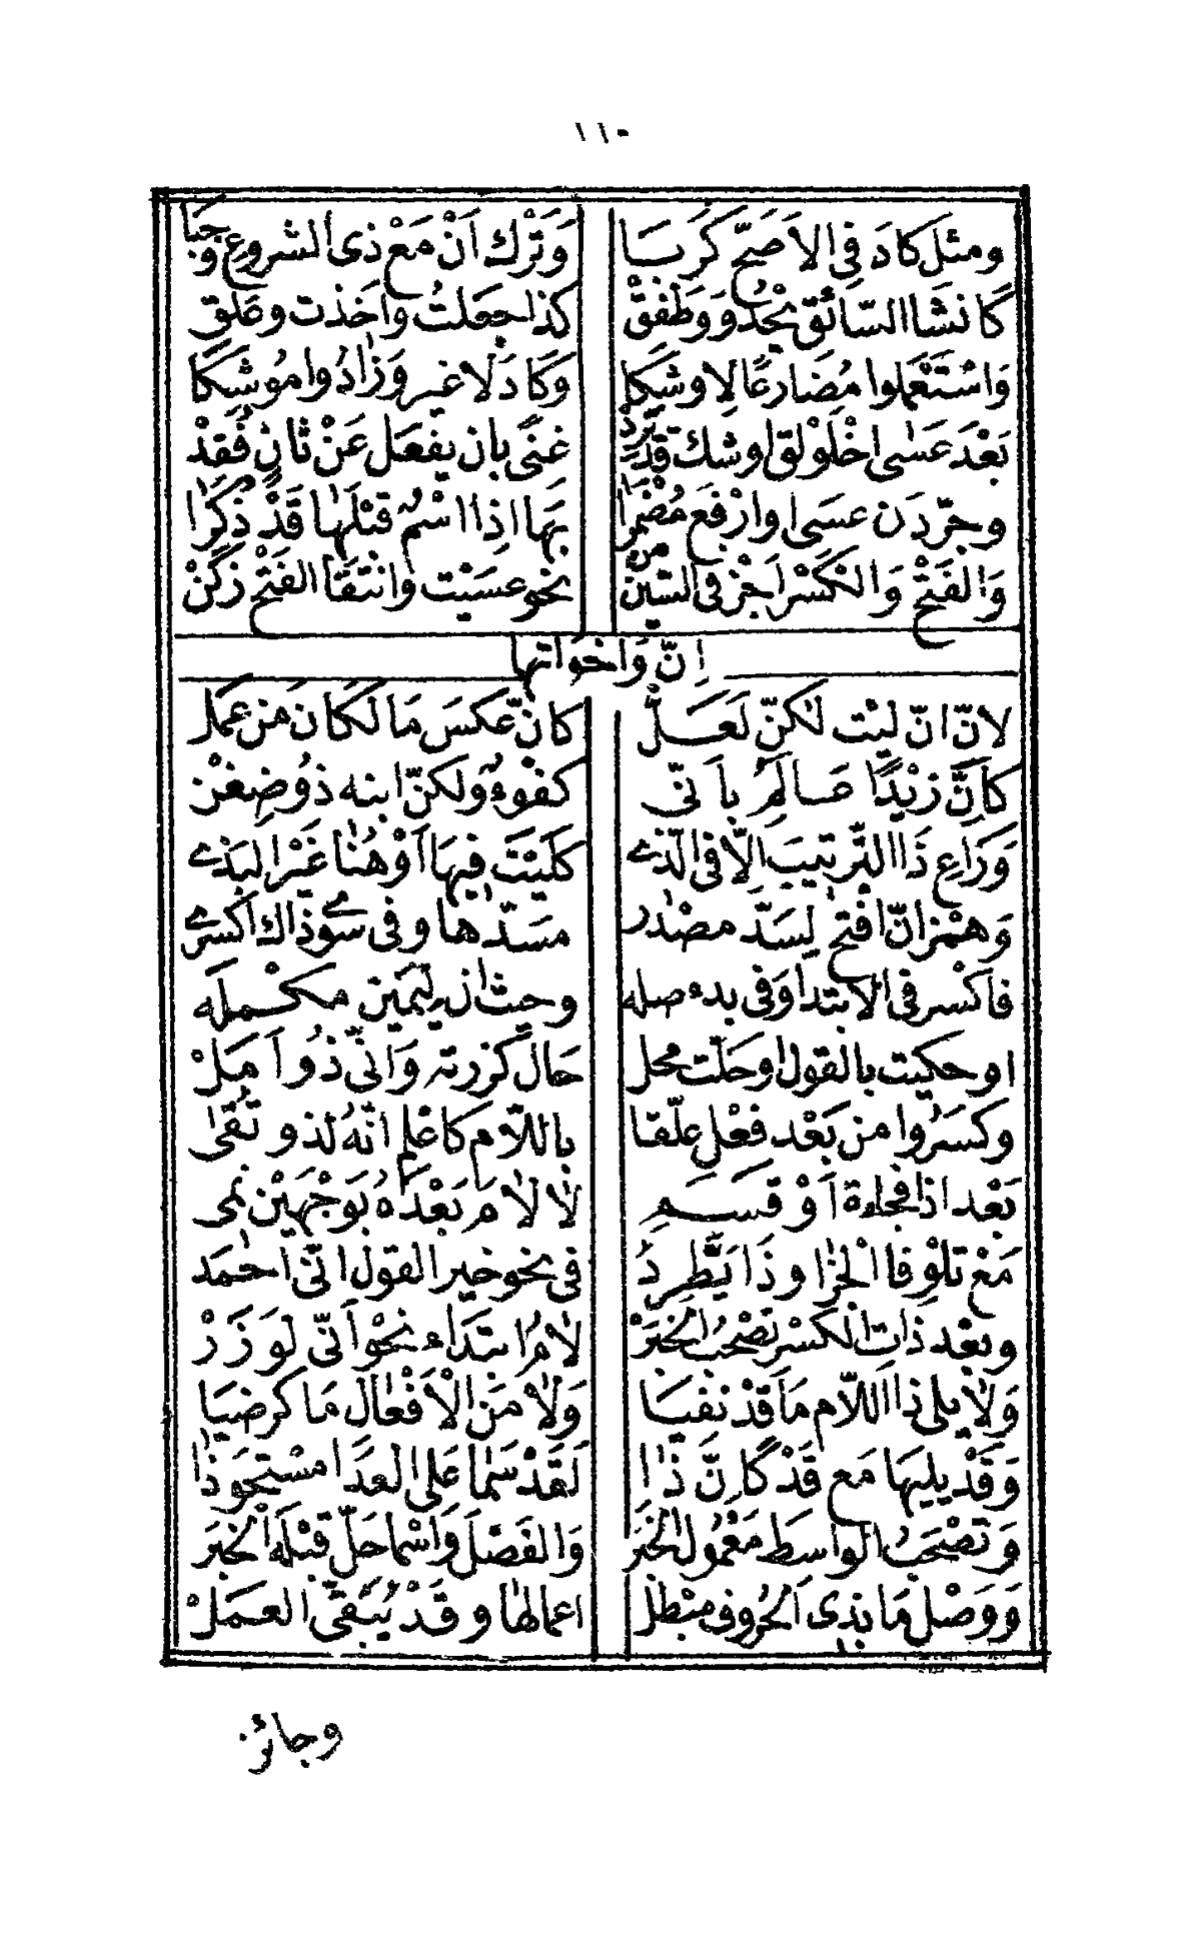 ١١٠
ومثل كَادَ فِي الاَصَحّ كَرَبَا وَتَرْك اَنْ مَعْ ذِى الشروعِ وَجَبَا
كَانشَا السّائق يَحْدُو وَطَفِقْ كذا جعلتُ واَخذت وعَلِق
وَاسْتَعْمَلوا مُضَارعًا لاوشكا وَكَادَ لا غير وَزَادُوا مُوشِكَا
بَعْدَ عَسٰى اخْلَوْلَق اوشك قَد يَرِدْ غنًى بان يفعَل عَنْ ثانٍ فُقِدْ
وجرّدَن عسَى او ارْفع مُضْمَرَا بهَا اذِا اسْمٌ قبْلَهَا قَدْ ذُكِرَا
وَالفَتْحَ وَالكَسْرَ اَجِزْ فى السّين من نحو عسَيْت وَانتقَا الفَتْح زكِنْ
اِنّ وَاخوَاتهَا
لانّ انّ ليْت لٰكنّ لَعَلّْ كانّ عكسَ مَا لكَان من عمَل
كَاَنَّ زيْدًا عَالِمٌ باَنّى كفوءٌ ولكنّ ابنه ذوُ ضِغْن
وَرَاعِ ذَا التّرتيبَ الاّ فى الّذى كَلَيْتَ فيهَا اَوْ هُنَا غَيْر البَذى
وَهمْز انّ افْتح لِسَدّ مصْدر مسَدّها وفى سوى ذاك اكسرى
فاكْسر فى الابتدا وَفى بدء صله وحيث ان ليَمين مكْمله
او حكيت بالقول او حَلّت محل حَال كزرته وَانّى ذُو اَمَلْ
وكسَرُوا من بَعْد فعْلٍ علّقا باللاّم كاعْلم انّهُ لذو تُقَى
بَعْد اذا فجاءة اَوْ قسَمِ لا لاَم بَعْدَهُ بوَجْهَيْن نمى
مَعْ تلْوِ فا الْجزا وذَا يَطّرِدُ فى نحو خير القول انّى احْمَد
وبَعْد ذات الكَسْر تصْحَبُ الخبَرْ لاَمُ ابتدَاء نحْو اَنّى لوَزَرْ
وَلا يلى ذا اللاّم مَا قدْ نفيَا وَلا منَ الْاَفْعال مَا كرضيَا
وَقَدْ يليهَا مَع قَدْ كَانَّ ذَا لَقَدْ سَما عَلى العدَا مسْتحوذا
وَتصْحَبُ الواسِطَ مَعْمُول الخبَرَ وَالفَصْلَ وَاسْما حَلّ قبْلَه الْخبَر
وَوَصْل مَا بذِى الحُروف مبْطل اعمالهَا وقَدْ يُبَقّى العمَلْ
وجائز